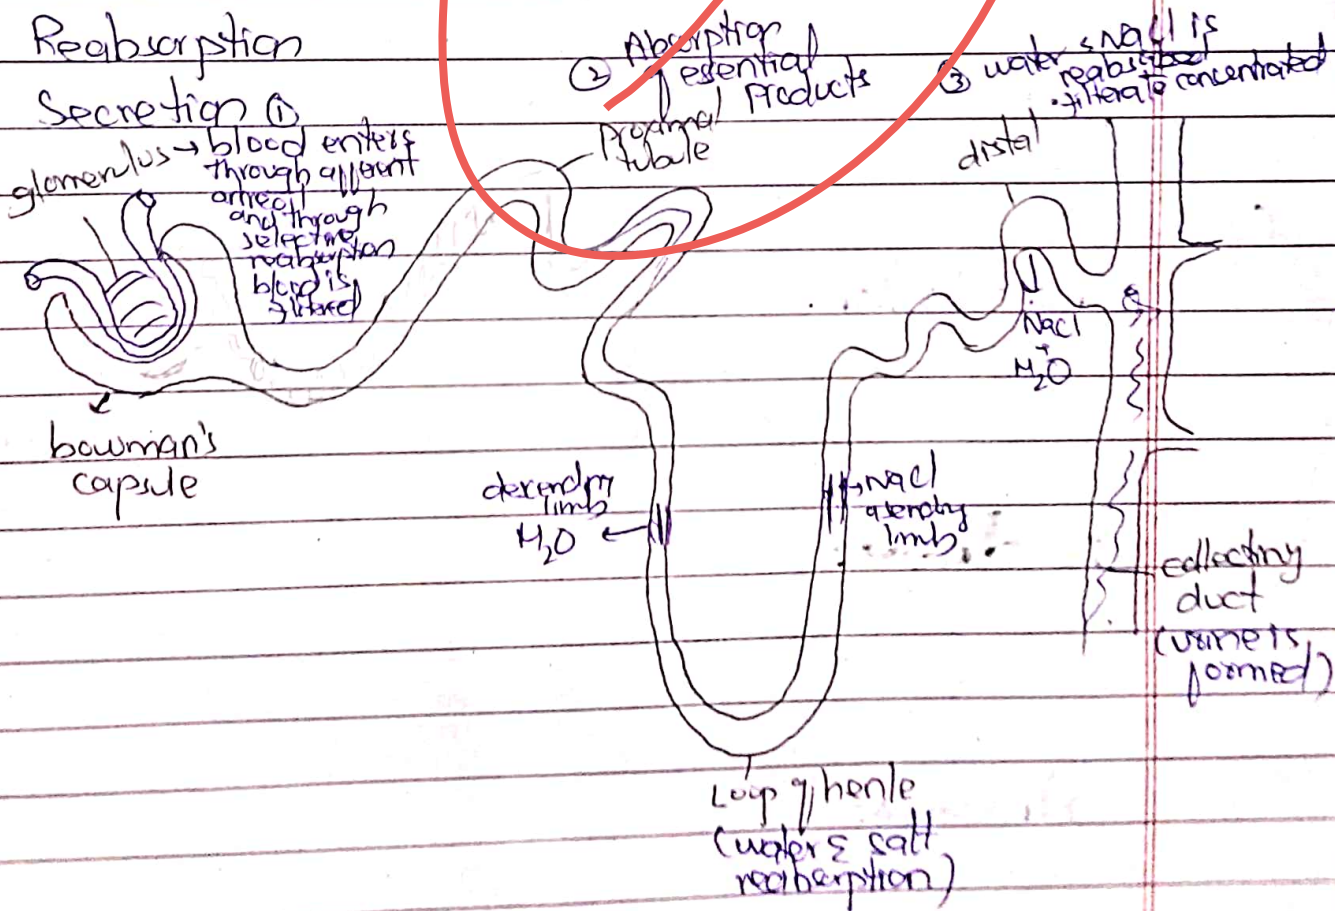 Reabsorption
Secretion ①
glomerulus → blood enters
through afferent
and through
selective
reabsorption
blood is
filtered
bowman's
capsule
② Absorption
of essential
Products
Proximal
tubule
③ water & NaCl is
reabsorbed
filterate concentrated
distal
NaCl
+
H₂O
descending
limb
H₂O
NaCl
ascending
limb
collecting
duct
(urine is
formed)
Loop of henle
(water & salt
reabsorption)